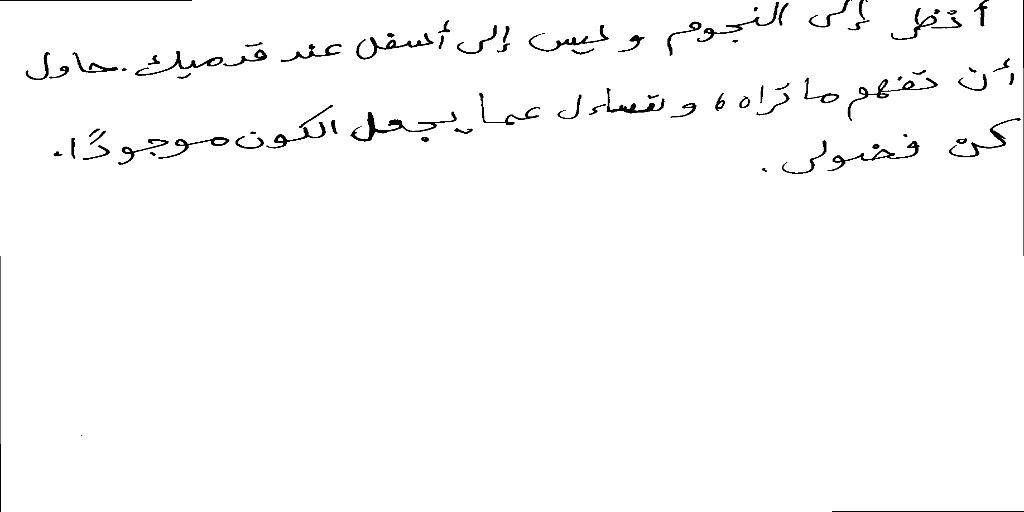 أنظر إلى النجوم وليس إلى أسفل عند قدميك. حاول
أن تفهم ما تراه، وتساءل عما يجعل الكون موجودًا.
كن فضولى.